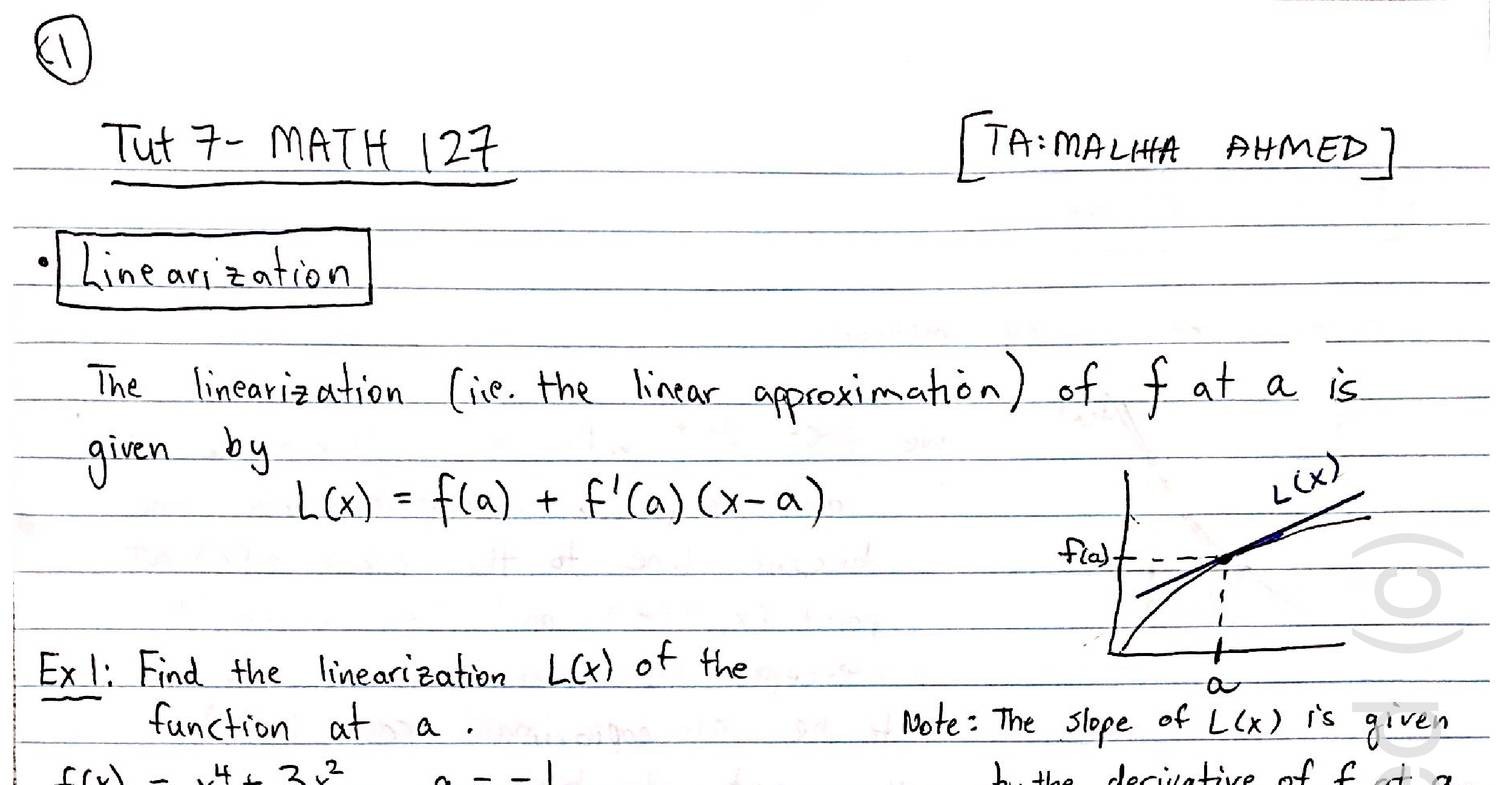 1
Tut 7- MATH 127
[TA: MALIHA AHMED]
• Linearization
The linearization (i.e. the linear approximation) of f at a is
given by
L(x) = f(a) + f'(a) (x-a)
L(x)
f(a)
a
Ex 1: Find the linearization L(x) of the
function at a.
f(x) = x⁴ + 3x² a = -1
Note: The slope of L(x) is given
by the derivative of f at a
(c)